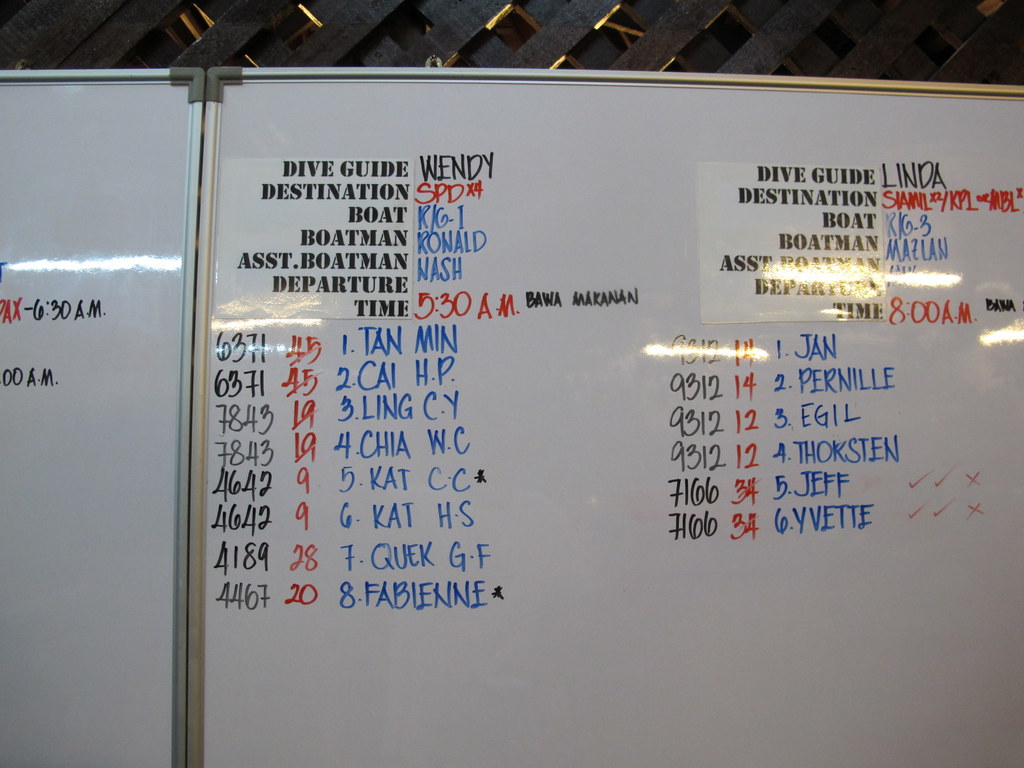 PAX-6:30 A.M.
:00 A.M.
DIVE GUIDE WENDY
DESTINATION SPD x4
BOAT R/G-1
BOATMAN RONALD
ASST.BOATMAN NASH
DEPARTURE
TIME 5:30 A.M. BAWA MAKANAN
6371 45 1. TAN MIN
6371 45 2. CAI H.P.
7843 19 3. LING C.Y
7843 19 4. CHIA W.C
4642 9 5. KAT C.C*
4642 9 6. KAT H.S
4189 28 7. QUEK G.F
4467 20 8. FABIENNE *
DIVE GUIDE LINDA
DESTINATION SIAMIL x2/KPL MBL
BOAT R/G-3
BOATMAN MAZLAN
ASST.BOATMAN
DEPARTURE
TIME 8:00 A.M. BAWA
9312 14 1. JAN
9312 14 2. PERNILLE
9312 12 3. EGIL
9312 12 4. THORSTEN
7166 34 5. JEFF ✓ ✓ ×
7166 34 6. YVETTE ✓ ✓ ×